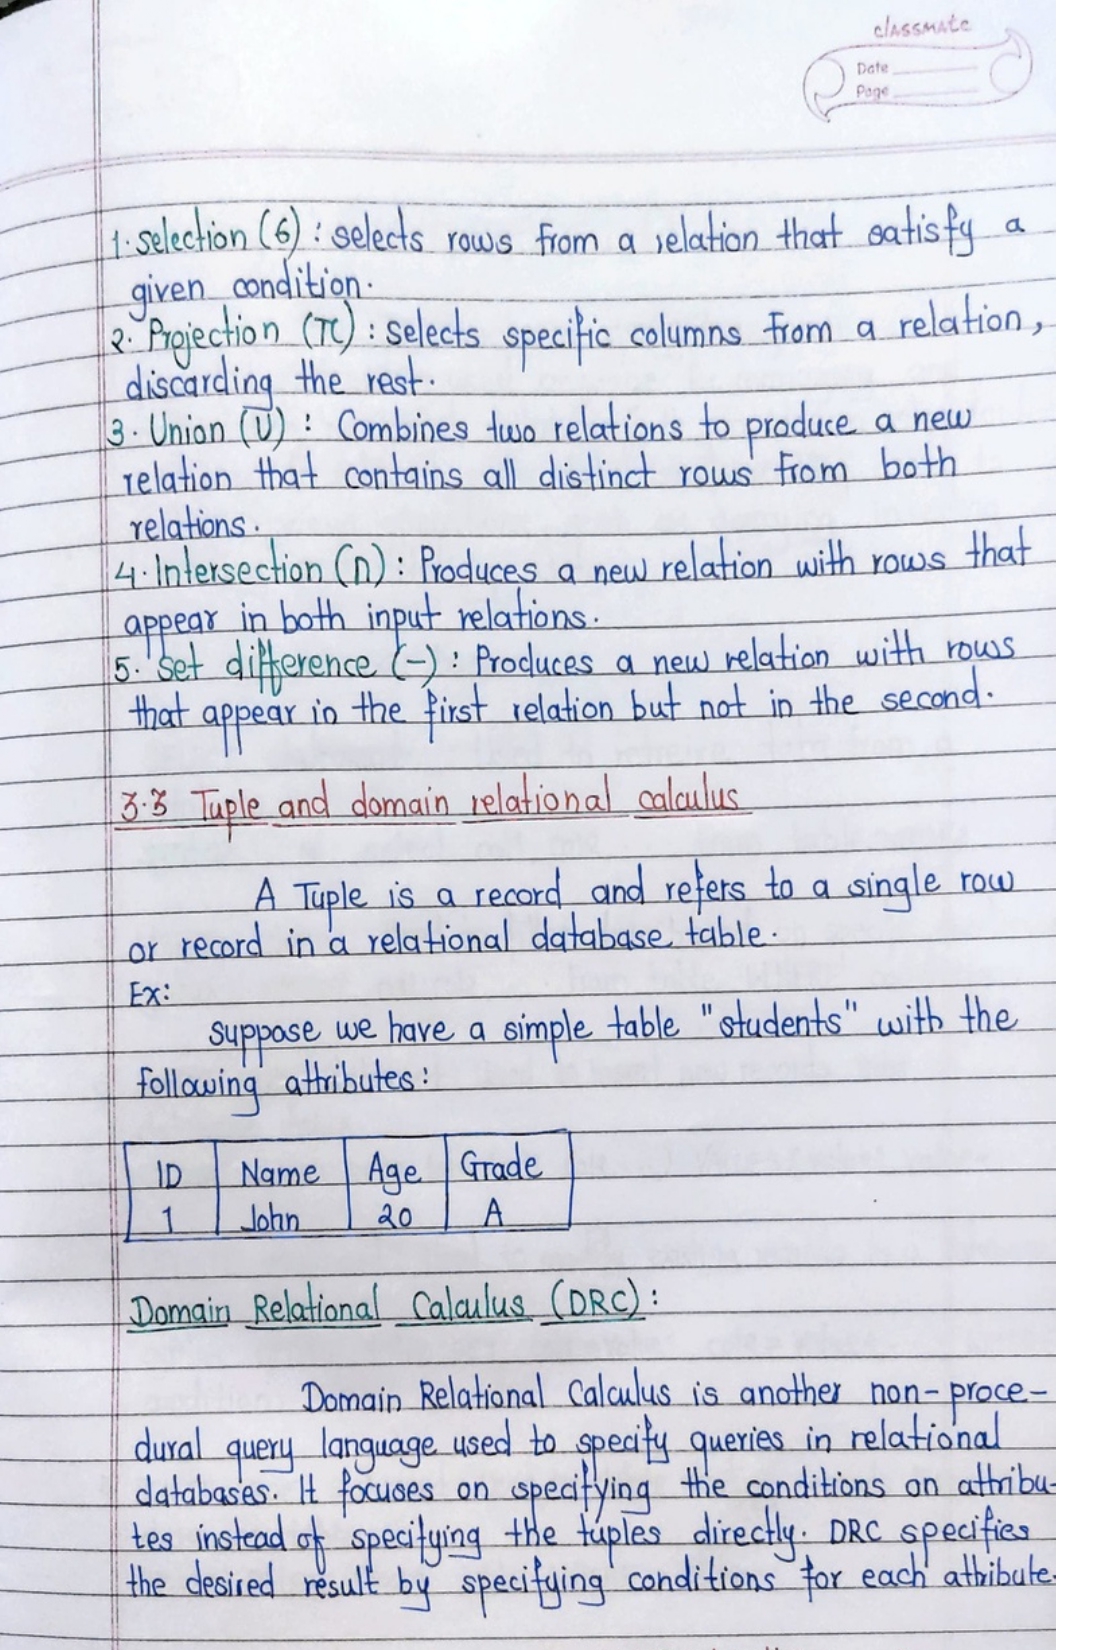 classmate
Date
Page
1. Selection (6) : selects rows from a relation that satisfy a
given condition.
2. Projection (π) : selects specific columns from a relation,
discarding the rest.
3. Union (U) : Combines two relations to produce a new
relation that contains all distinct rows from both
relations.
4. Intersection (n) : Produces a new relation with rows that
appear in both input relations.
5. Set difference (-) : Produces a new relation with rows
that appear in the first relation but not in the second.
3.3 Tuple and domain relational calculus
A Tuple is a record and refers to a single row
or record in a relational database table.
Ex:
Suppose we have a simple table "students" with the
following attributes:
ID Name Age Grade
1 John 20 A
Domain Relational Calculus (DRC) :
Domain Relational Calculus is another non-proce-
dural query language used to specify queries in relational
databases. It focuses on specifying the conditions on attribu-
tes instead of specifying the tuples directly. DRC specifies
the desired result by specifying conditions for each attribute.